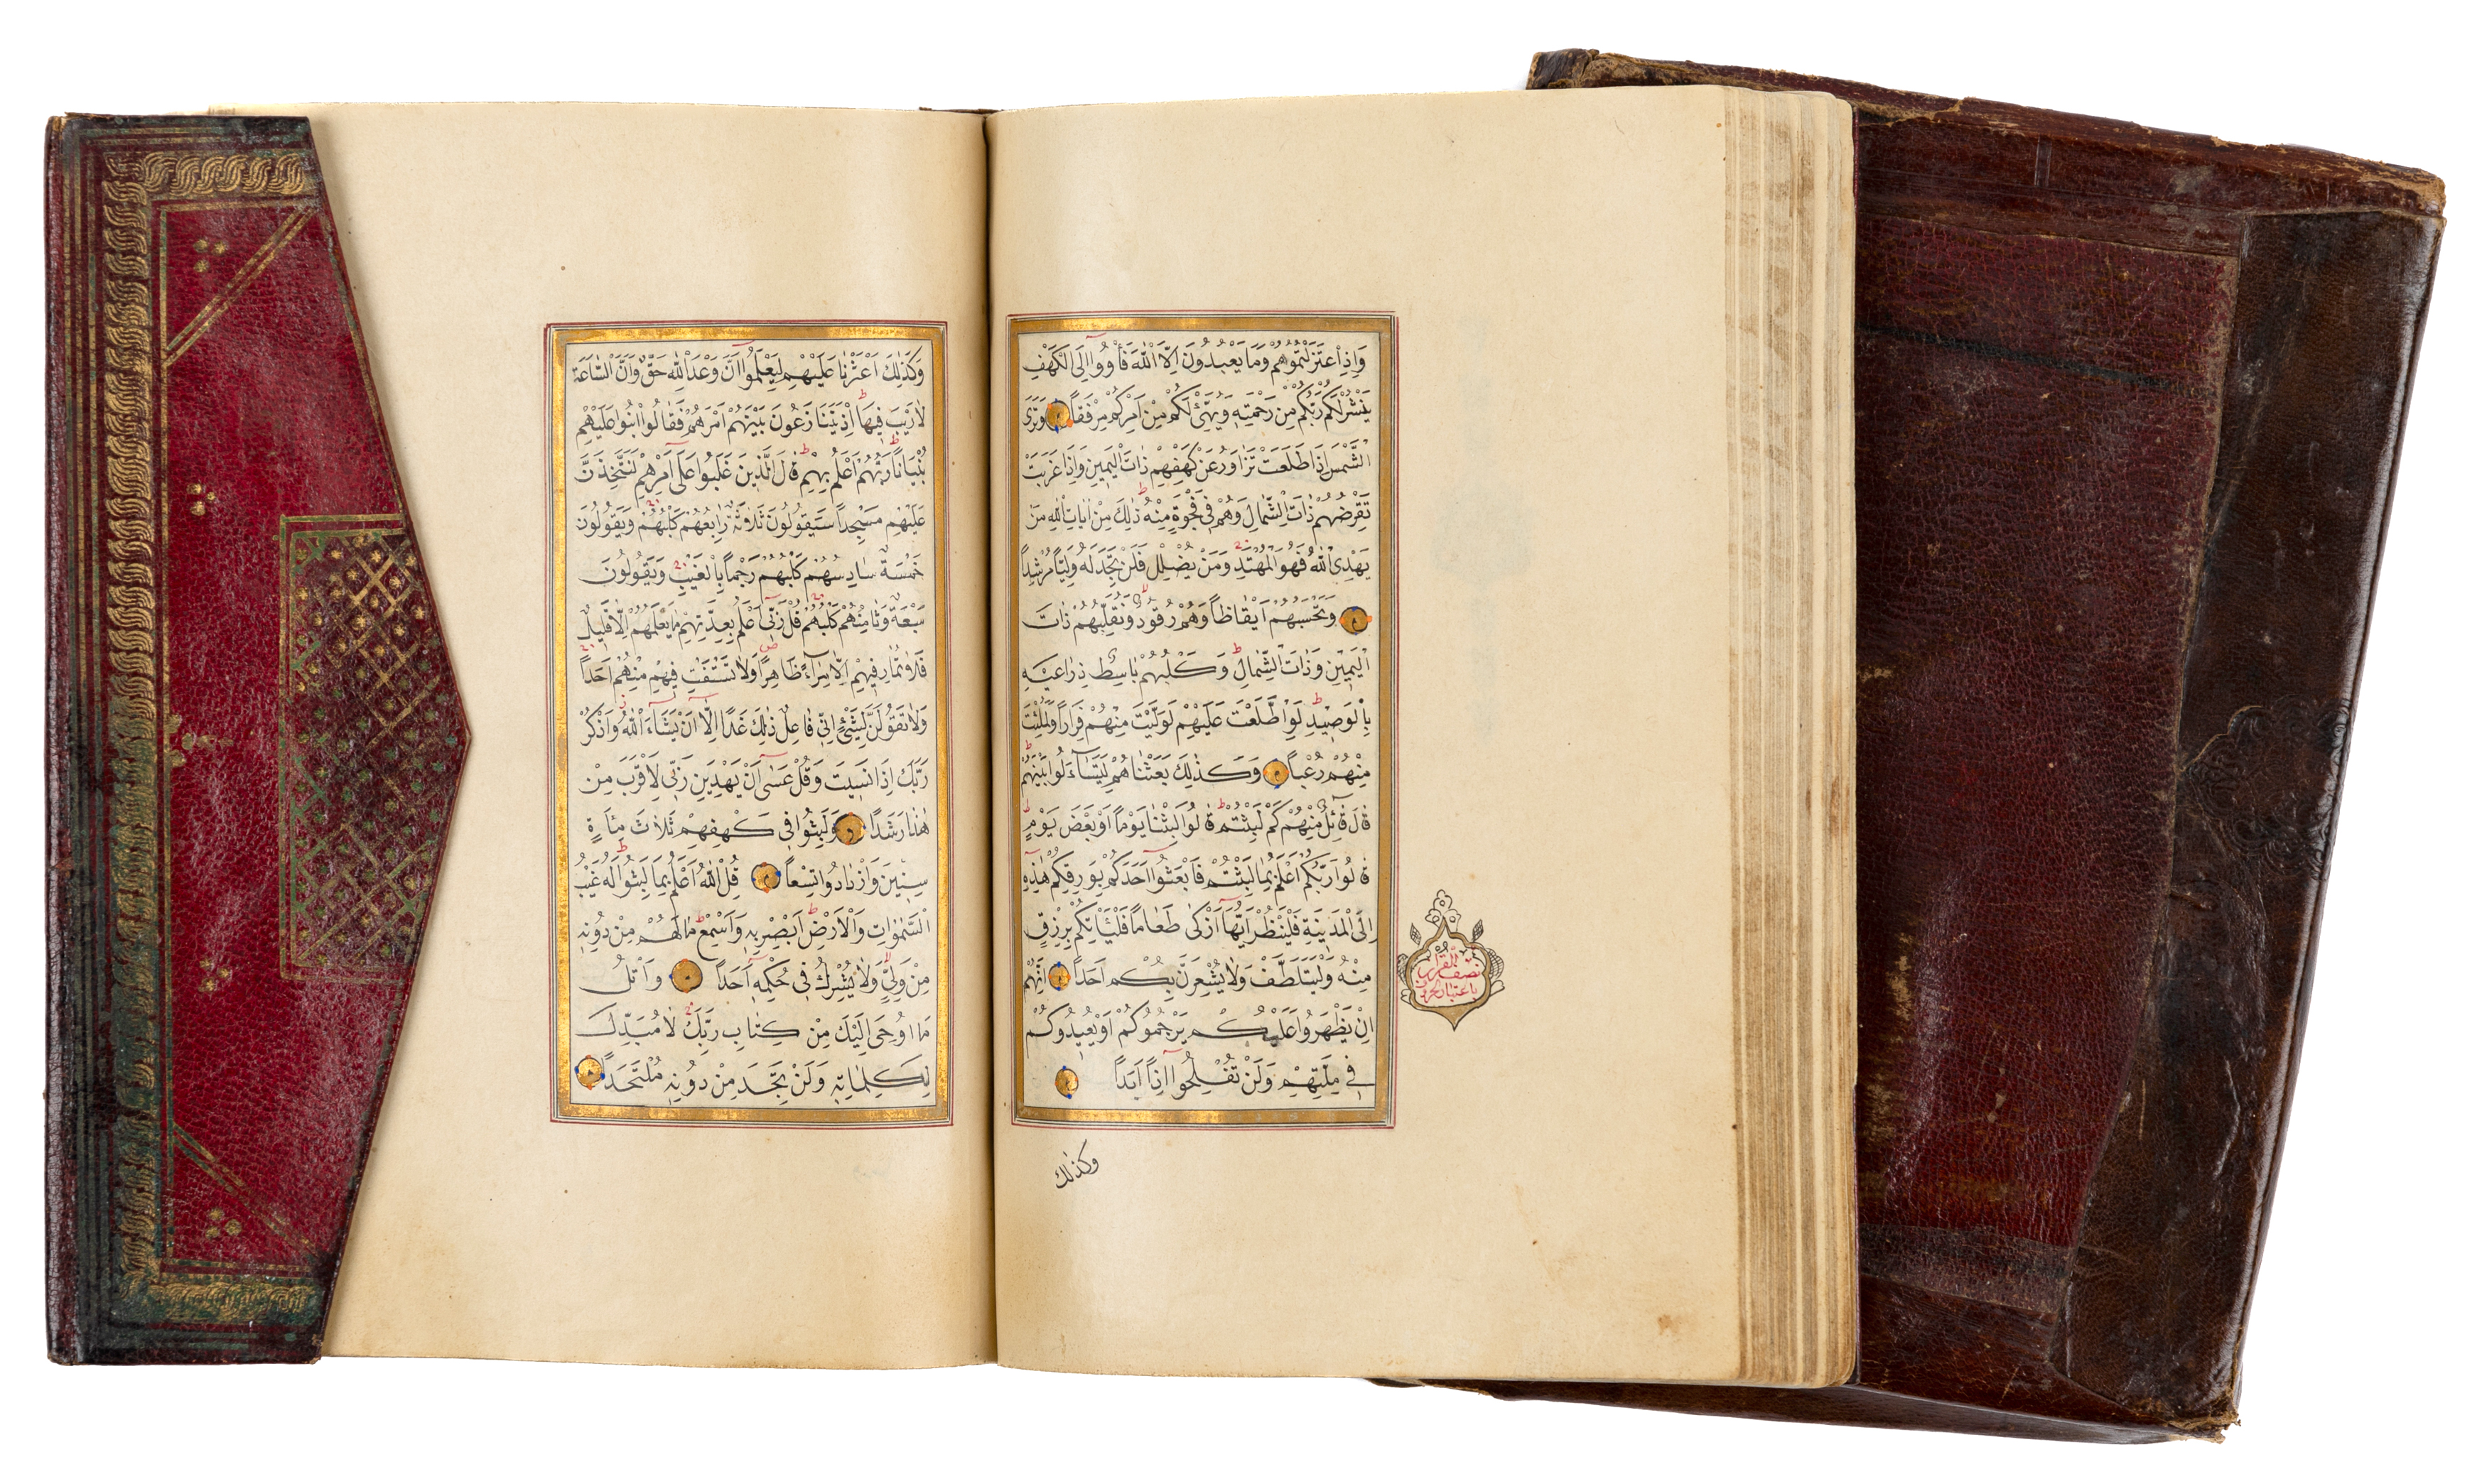 وَاِذِ اعْتَزَلْتُمُوهُمْ وَمَا يَعْبُدُونَ اِلَّا اللّٰهَ فَأْوُوا اِلَى الْكَهْفِ
يَنْشُرْ لَكُمْ رَبُّكُمْ مِنْ رَحْمَتِهِ وَيُهَيِّئْ لَكُمْ مِنْ اَمْرِكُمْ مِرْفَقاً وَتَرَى
الشَّمْسَ اِذَا طَلَعَتْ تَزَاوَرُ عَنْ كَهْفِهِمْ ذَاتَ الْيَمِينِ وَاِذَا غَرَبَتْ
تَقْرِضُهُمْ ذَاتَ الشِّمَالِ وَهُمْ فِي فَجْوَةٍ مِنْهُ ذٰلِكَ مِنْ اٰيَاتِ اللّٰهِ مَنْ
يَهْدِي اللّٰهُ فَهُوَ الْمُهْتَدِ وَمَنْ يُضْلِلْ فَلَنْ تَجِدَ لَهُ وَلِيّاً مُرْشِداً
وَتَحْسَبُهُمْ اَيْقَاظاً وَهُمْ رُقُودٌ وَنُقَلِّبُهُمْ ذَاتَ
الْيَمِينِ وَذَاتَ الشِّمَالِ وَكَلْبُهُمْ بَاسِطٌ ذِرَاعَيْهِ
بِالْوَصِيدِ لَوِ اطَّلَعْتَ عَلَيْهِمْ لَوَلَّيْتَ مِنْهُمْ فِرَاراً وَلَمُلِئْتَ
مِنْهُمْ رُعْباً وَكَذٰلِكَ بَعَثْنَاهُمْ لِيَتَسَاءَلُوا بَيْنَهُمْ
قَالَ قَائِلٌ مِنْهُمْ كَمْ لَبِثْتُمْ قَالُوا لَبِثْنَا يَوْماً اَوْ بَعْضَ يَوْمٍ
قَالُوا رَبُّكُمْ اَعْلَمُ بِمَا لَبِثْتُمْ فَابْعَثُوا اَحَدَكُمْ بِوَرِقِكُمْ هٰذِهِ
اِلَى الْمَدِينَةِ فَلْيَنْظُرْ اَيُّهَا اَزْكٰى طَعَاماً فَلْيَأْتِكُمْ بِرِزْقٍ
مِنْهُ وَلْيَتَلَطَّفْ وَلَا يُشْعِرَنَّ بِكُمْ اَحَداً اِنَّهُمْ
اِنْ يَظْهَرُوا عَلَيْكُمْ يَرْجُمُوكُمْ اَوْ يُعِيدُوكُمْ
فِي مِلَّتِهِمْ وَلَنْ تُفْلِحُوا اِذاً اَبَداً
وكذلك
نصف القرآن
باعتبار الحروف
وَكَذٰلِكَ اَعْثَرْنَا عَلَيْهِمْ لِيَعْلَمُوا اَنَّ وَعْدَ اللّٰهِ حَقٌّ وَاَنَّ السَّاعَةَ
لَا رَيْبَ فِيهَا اِذْ يَتَنَازَعُونَ بَيْنَهُمْ اَمْرَهُمْ فَقَالُوا ابْنُوا عَلَيْهِمْ
بُنْيَاناً رَبُّهُمْ اَعْلَمُ بِهِمْ قَالَ الَّذِينَ غَلَبُوا عَلٰى اَمْرِهِمْ لَنَتَّخِذَنَّ
عَلَيْهِمْ مَسْجِداً سَيَقُولُونَ ثَلَاثَةٌ رَابِعُهُمْ كَلْبُهُمْ وَيَقُولُونَ
خَمْسَةٌ سَادِسُهُمْ كَلْبُهُمْ رَجْماً بِالْغَيْبِ وَيَقُولُونَ
سَبْعَةٌ وَثَامِنُهُمْ كَلْبُهُمْ قُلْ رَبِّي اَعْلَمُ بِعِدَّتِهِمْ مَا يَعْلَمُهُمْ اِلَّا قَلِيلٌ
فَلَا تُمَارِ فِيهِمْ اِلَّا مِرَاءً ظَاهِراً وَلَا تَسْتَفْتِ فِيهِمْ مِنْهُمْ اَحَداً
وَلَا تَقُولَنَّ لِشَيْءٍ اِنِّي فَاعِلٌ ذٰلِكَ غَداً اِلَّا اَنْ يَشَاءَ اللّٰهُ وَاذْكُرْ
رَبَّكَ اِذَا نَسِيتَ وَقُلْ عَسٰى اَنْ يَهْدِيَنِ رَبِّي لِاَقْرَبَ مِنْ
هٰذَا رَشَداً وَلَبِثُوا فِي كَهْفِهِمْ ثَلَاثَ مِائَةٍ
سِنِينَ وَازْدَادُوا تِسْعاً قُلِ اللّٰهُ اَعْلَمُ بِمَا لَبِثُوا لَهُ غَيْبُ
السَّمٰوَاتِ وَالْاَرْضِ اَبْصِرْ بِهِ وَاَسْمِعْ مَا لَهُمْ مِنْ دُونِهِ
مِنْ وَلِيٍّ وَلَا يُشْرِكُ فِي حُكْمِهِ اَحَداً وَاتْلُ
مَا اُوحِيَ اِلَيْكَ مِنْ كِتَابِ رَبِّكَ لَا مُبَدِّلَ
لِكَلِمَاتِهِ وَلَنْ تَجِدَ مِنْ دُونِهِ مُلْتَحَداً